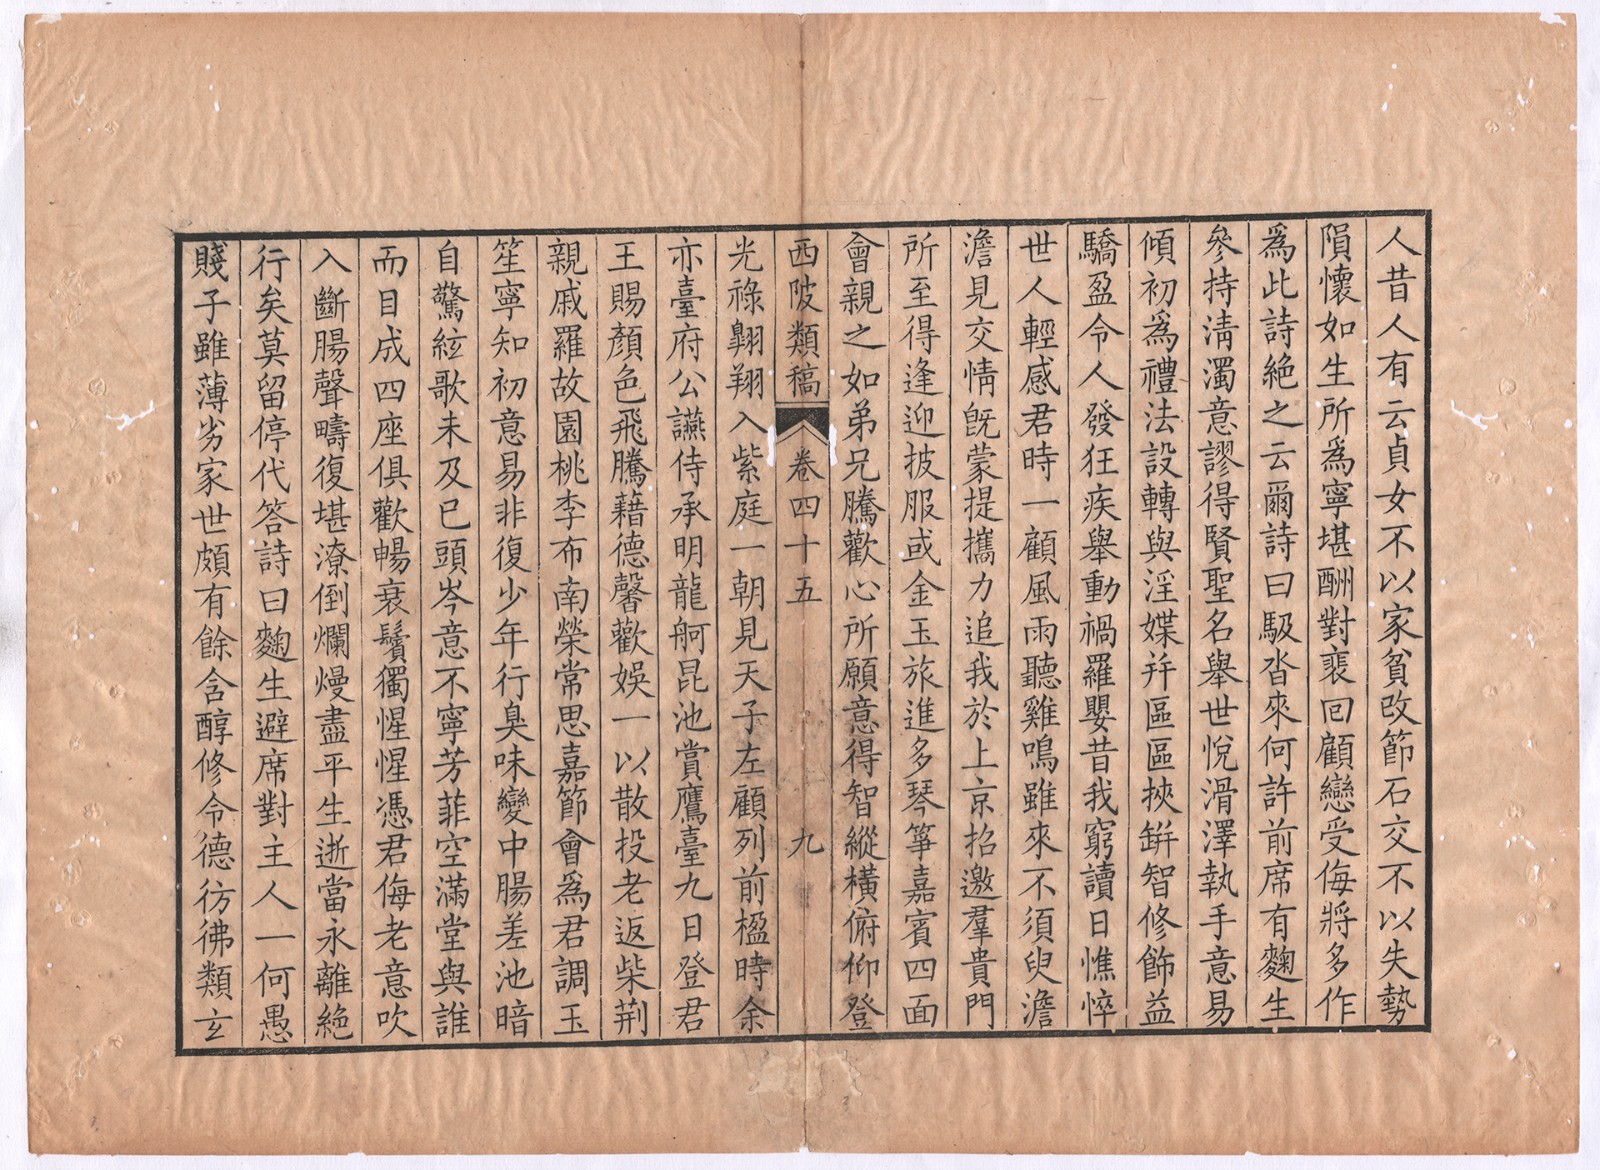 人昔人有云貞女不以家貧改節石交不以失勢
隕懷如生所為寧堪酬對裵回顧戀受侮將多作
為此詩絶之云爾詩曰馺沓來何許前席有麴生
參持淸濁意謬得賢聖名舉世悅滑澤執手意易
傾初為禮法設轉與淫媟幷區區挾缾智修飾益
驕盈令人發狂疾舉動禍羅嬰昔我窮讀日憔悴
世人輕感君時一顧風雨聽雞鳴雖來不須臾澹
澹見交情旣蒙提攜力追我於上京招邀羣貴門
所至得逢迎披服或金玉旅進多琴箏嘉賓四面
會親之如弟兄騰歡心所願意得智縱橫俯仰登
西陂類稿 卷四十五 九
光祿翺翔入紫庭一朝見天子左顧列前楹時余
亦臺府公讌侍承明龍舸昆池賞鷹臺九日登君
王賜顏色飛騰藉德馨歡娛一以散投老返柴荆
親戚羅故園桃李布南榮常思嘉節會為君調玉
笙寧知初意易非復少年行臭味變中腸差池暗
自驚絃歌未及已頭岑意不寧芳菲空滿堂與誰
而目成四座俱歡暢衰鬢獨惺惺憑君侮老意吹
入斷腸聲疇復堪潦倒爛熳盡平生逝當永離絶
行矣莫留停代答詩曰麴生避席對主人一何愚
賤子雖薄劣家世頗有餘含醇修令德彷彿類玄